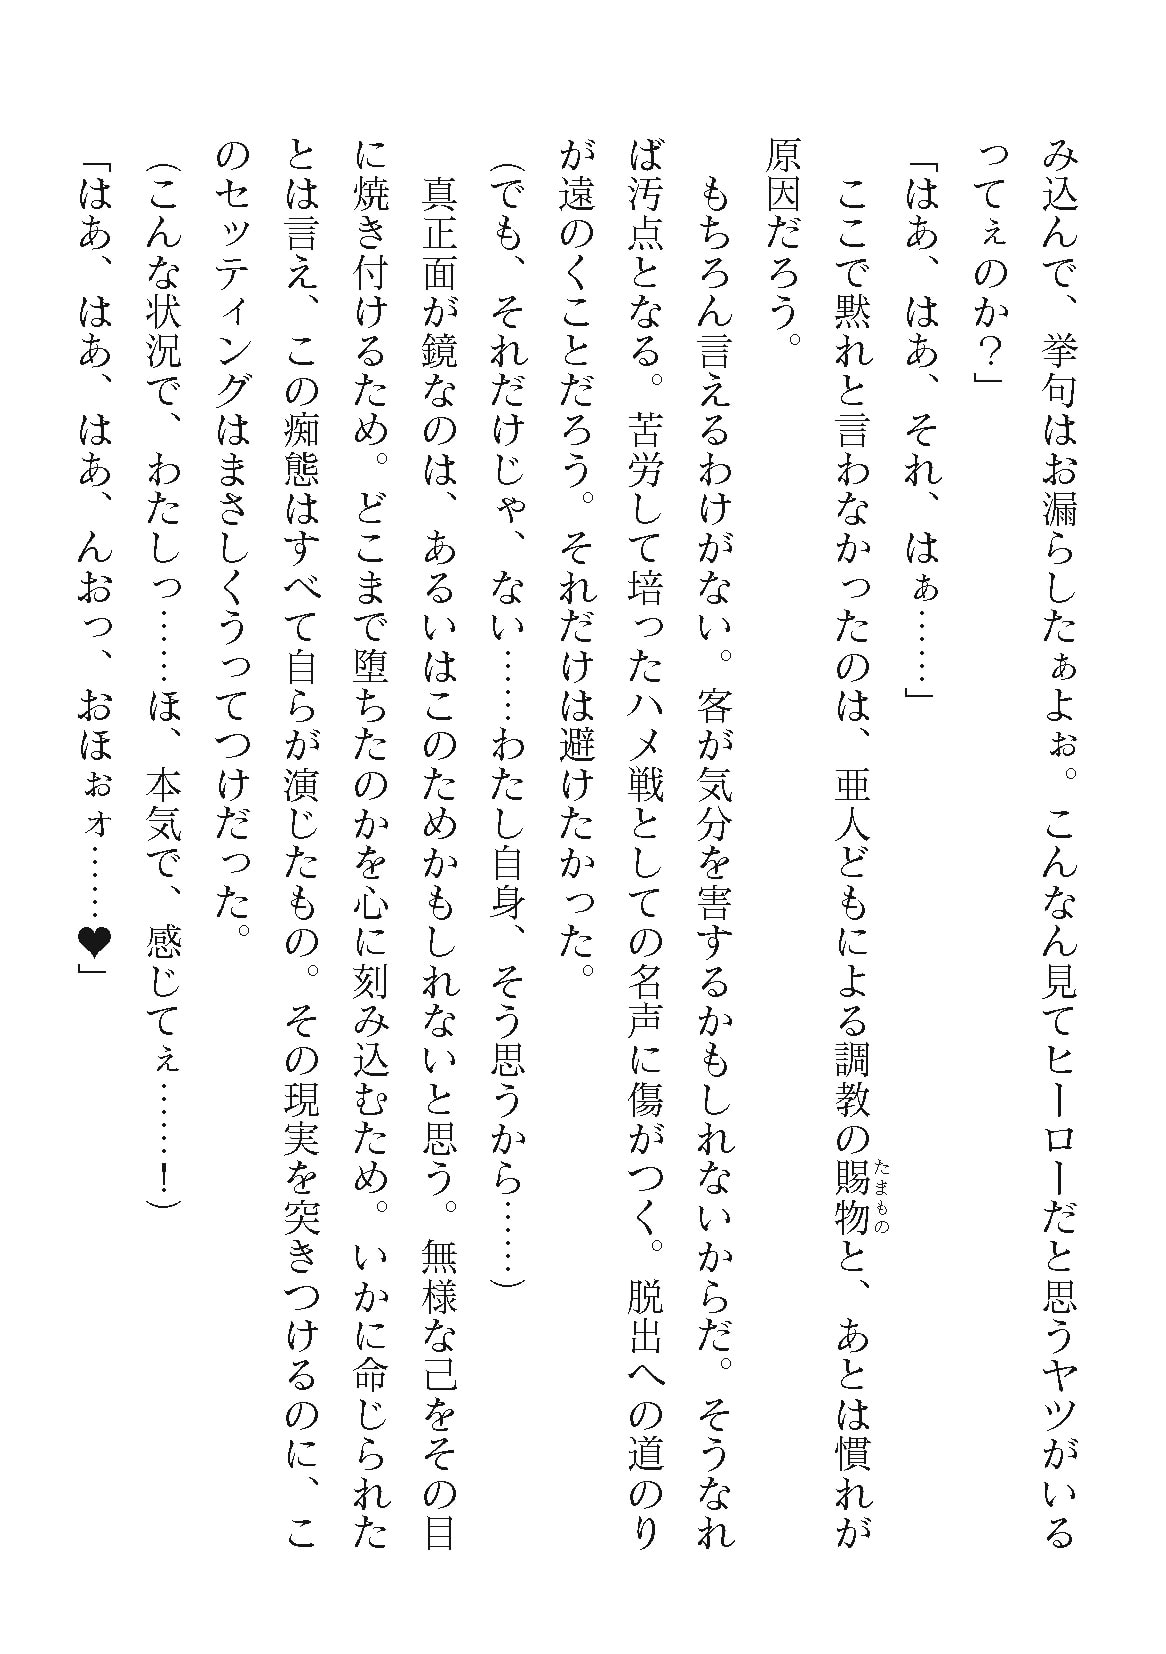 み込んで、挙句はお漏らしたぁよぉ。こんなん見てヒーローだと思うヤツがいる
ってぇのか？」
「はあ、はあ、それ、はぁ……」
ここで黙れと言わなかったのは、亜人どもによる調教の賜物と、あとは慣れが
たまもの
原因だろう。
もちろん言えるわけがない。客が気分を害するかもしれないからだ。そうなれ
ば汚点となる。苦労して培ったハメ戦としての名声に傷がつく。脱出への道のり
が遠のくことだろう。それだけは避けたかった。
（でも、それだけじゃ、ない……わたし自身、そう思うから……）
真正面が鏡なのは、あるいはこのためかもしれないと思う。無様な己をその目
に焼き付けるため。どこまで堕ちたのかを心に刻み込むため。いかに命じられた
とは言え、この痴態はすべて自らが演じたもの。その現実を突きつけるのに、こ
のセッティングはまさしくうってつけだった。
（こんな状況で、わたしっ……ほ、本気で、感じてぇ……！）
「はあ、はあ、はあ、んおっ、おほぉォ……♥」